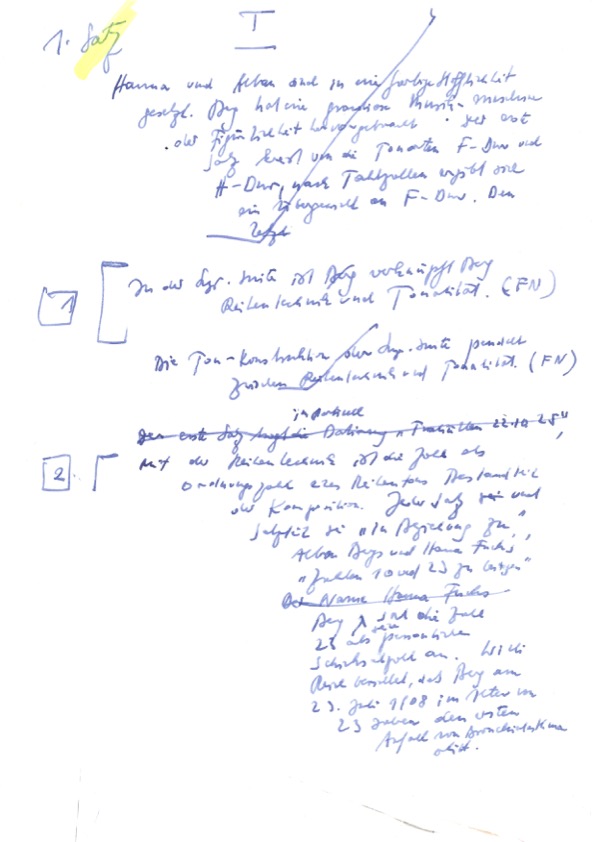 1. Satz
I
Hanna und Alban sind in eine
gesetzt. Berg hat eine Musik-
der Figürlichkeit hervorgebracht. Der erst
Satz kreist um die Tonarten F-Dur und
H-Dur, nach Taktzahlen ergibt sich
ein Übergewicht an F-Dur. Den
1 In der Lyr. Suite ist Berg verknüpft Berg
Reihentechnik und Tonalität. (FN)
Die Ton-Konstruktion der Lyr. Suite pendelt
zwischen Reihentechnik und Tonalität. (FN)
in Partitur
Der erste Satz trägt die Datierung
2. Mit der Reihentechnik ist die Zahl als
Ordnungszahl eines Reihentons Bestandteil
der Komposition. Jeder Satz sei und
sie "in Beziehung zu"
Alban Bergs und Hanna Fuchs'
"Zahlen 10 und 23 zu bringen"
Der Name Hanna Fuchs
Berg sah die Zahl
23 als seine persönliche
Schicksalszahl an. Willi
Reich berichtet, daß Berg am
23. Juli 1908 im Alter von
23 Jahren den ersten
Anfall von Bronchialasthma